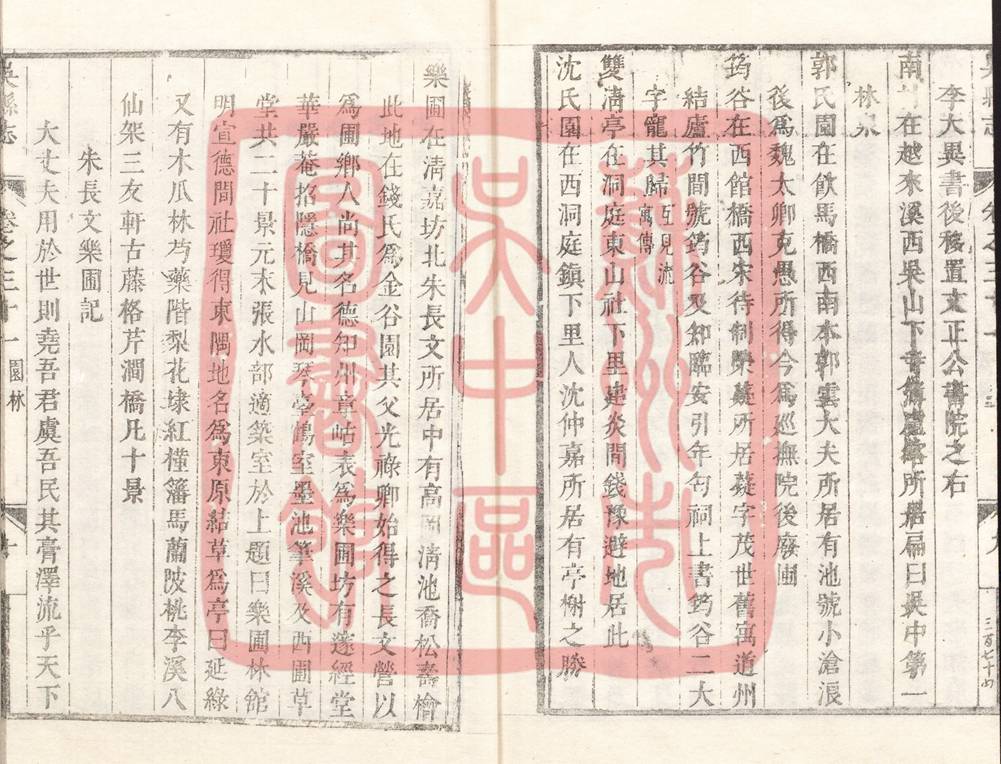 李大異書後移置文正公書院之右
南村在越來溪西吳山下章氏廬所居扁曰吳中第一
林泉
郭氏園在飲馬橋西南本郭雲大夫所居有池號小滄浪
後爲魏太卿克愚所得今爲巡撫院後廢圃
筠谷在西館橋西宋待制榮薿所居薿字茂世舊寓道州
結廬竹間號筠谷及知臨安引年匄祠上書筠谷二大
字寵其歸互見流寓傳
雙淸亭在洞庭東山社下里建炎間錢豫避地居此
沈氏園在西洞庭鎭下里人沈仲嘉所居有亭榭之勝
三百七十四
樂圃在淸嘉坊北朱長文所居中有高岡淸池喬松壽檜
此地在錢氏爲金谷園其父光祿卿始得之長文營以
爲圃鄕人尚其名德知州章岵表爲樂圃坊有邃經堂
華嚴菴招隱橋見山岡琴臺鶴室墨池筆溪及西圃草
堂共二十景元末張水部適築室於上題曰樂圃林館
明宣德間杜瓊得東隅地名爲東原結草爲亭曰延綠
又有木瓜林芍藥階梨花埭紅槿籓馬蘭陂桃李溪八
仙架三友軒古藤格芹澗橋凡十景
朱長文樂圃記
大丈夫用於世則堯吾君虞吾民其膏澤流乎天下
吳縣志
卷之三十一
園林
十
蘇州市
吳中區
圖書館